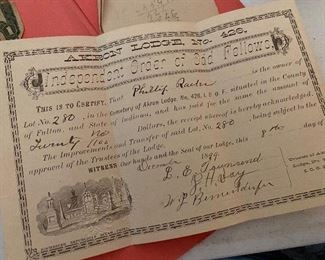 AKRON LODGE, No. 426,
Independent Order of Odd Fellows
THIS IS TO CERTIFY, That Phillip is the owner of
Lot No. 280 in the Cemetery of Akron Lodge, No. 426, I. O. O. F. situated in the County
of Fulton, and State of Indiana, and has paid for the same the amount of
Twenty Dollars, the receipt whereof is hereby acknowledged.
The Improvements and Transfer of said Lot No. 280 being subject to the
approval of the Trustees of the Lodge.
WITNESS Our hands and the Seal of our Lodge, this 8
December 1899
L. E. Townsend
Day
W. J.